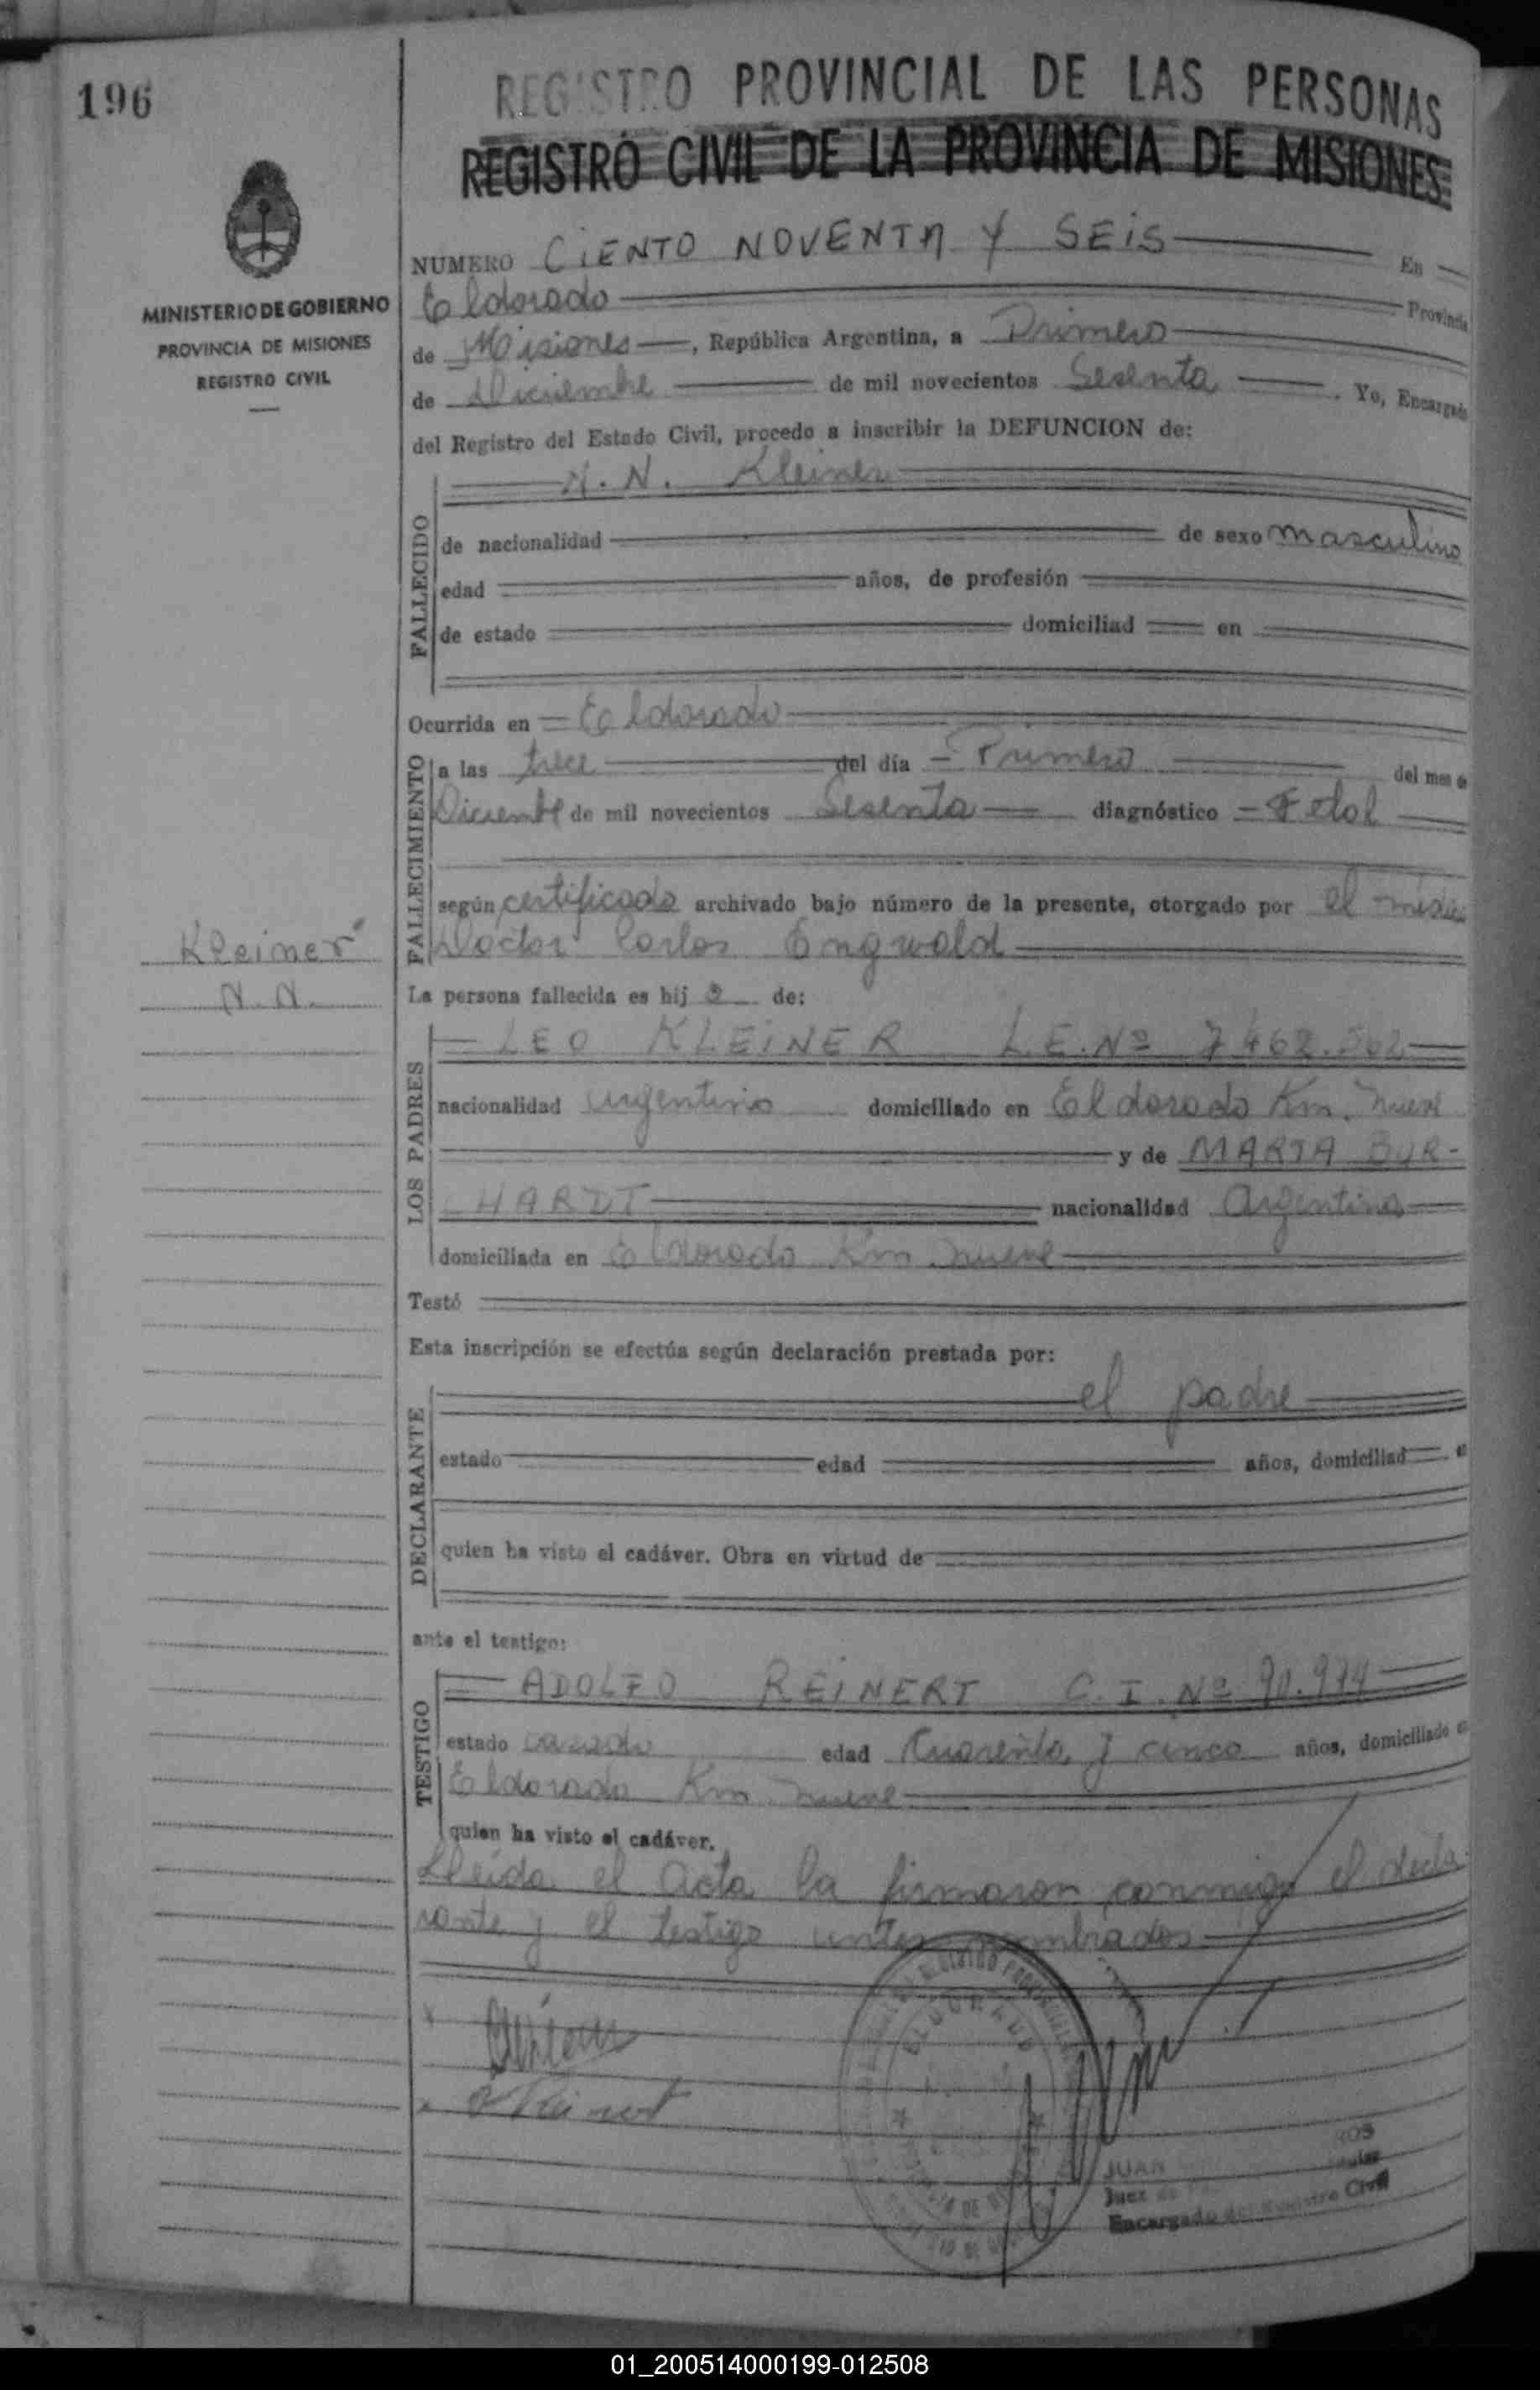 196
REGISTRO PROVINCIAL DE LAS PERSONAS
REGISTRO CIVIL DE LA PROVINCIA DE MISIONES
MINISTERIO DE GOBIERNO
PROVINCIA DE MISIONES
REGISTRO CIVIL
NUMERO CIENTO NOVENTA Y SEIS En
Eldorado Provincia
de Misiones, República Argentina, a Primero
de Diciembre de mil novecientos Sesenta. Yo, Encargado
del Registro del Estado Civil, procedo a inscribir la DEFUNCION de:
FALLECIDO
N. N. Kleiner
de nacionalidad de sexo masculino
edad años, de profesión
de estado domiciliad en
Ocurrida en Eldorado
FALLECIMIENTO
a las trece del día Primero del mes de
Diciembre de mil novecientos Sesenta diagnóstico Fetal
según certificado archivado bajo número de la presente, otorgado por el médico
Doctor Carlos Engwald
Kleiner
N. N.
La persona fallecida es hij o de:
LOS PADRES
LEO KLEINER L.E. Nº 7.462.562
nacionalidad argentino domiciliado en Eldorado Km. nueve
y de MARTA BUR-
HARDT nacionalidad Argentina
domiciliada en Eldorado Km. nueve
Testó
Esta inscripción se efectúa según declaración prestada por:
DECLARANTE
el padre
estado edad años, domiciliad
quien ha visto el cadáver. Obra en virtud de
ante el testigo:
TESTIGO
ADOLFO REINERT C. I. Nº 90.974
estado casado edad Cuarenta y cinco años, domiciliado
Eldorado Km. nueve
quien ha visto el cadáver.
Lleida el Acta la firmaron conmigo el decla-
rante y el testigo antes nombrados
ELDORADO
JUAN
Juez de
Encargado del Registro Civil
01_200514000199-012508